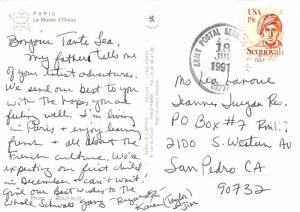 PARIS
Le Musée d'Orsay
Bonjour Tante Lea,
My father tells me
of your latest adventures.
We send our best to you
with the hopes you are
feeling well. I'm living
in Paris & enjoy learning
French & all about the
French culture. We're
expecting our first child
in December & can't wait!
Give our best wishes to the
whole gang
Karen
Photo: J. BOUTAUD
ARMY POSTAL SERVICE
18
JUL
1991
09777
USA
19c
Sequoyah
Ms Lea Lanoue
Jeanne Jugan Res.
PO Box #7 Rm
2100 S. Western Av
San Pedro CA
90732